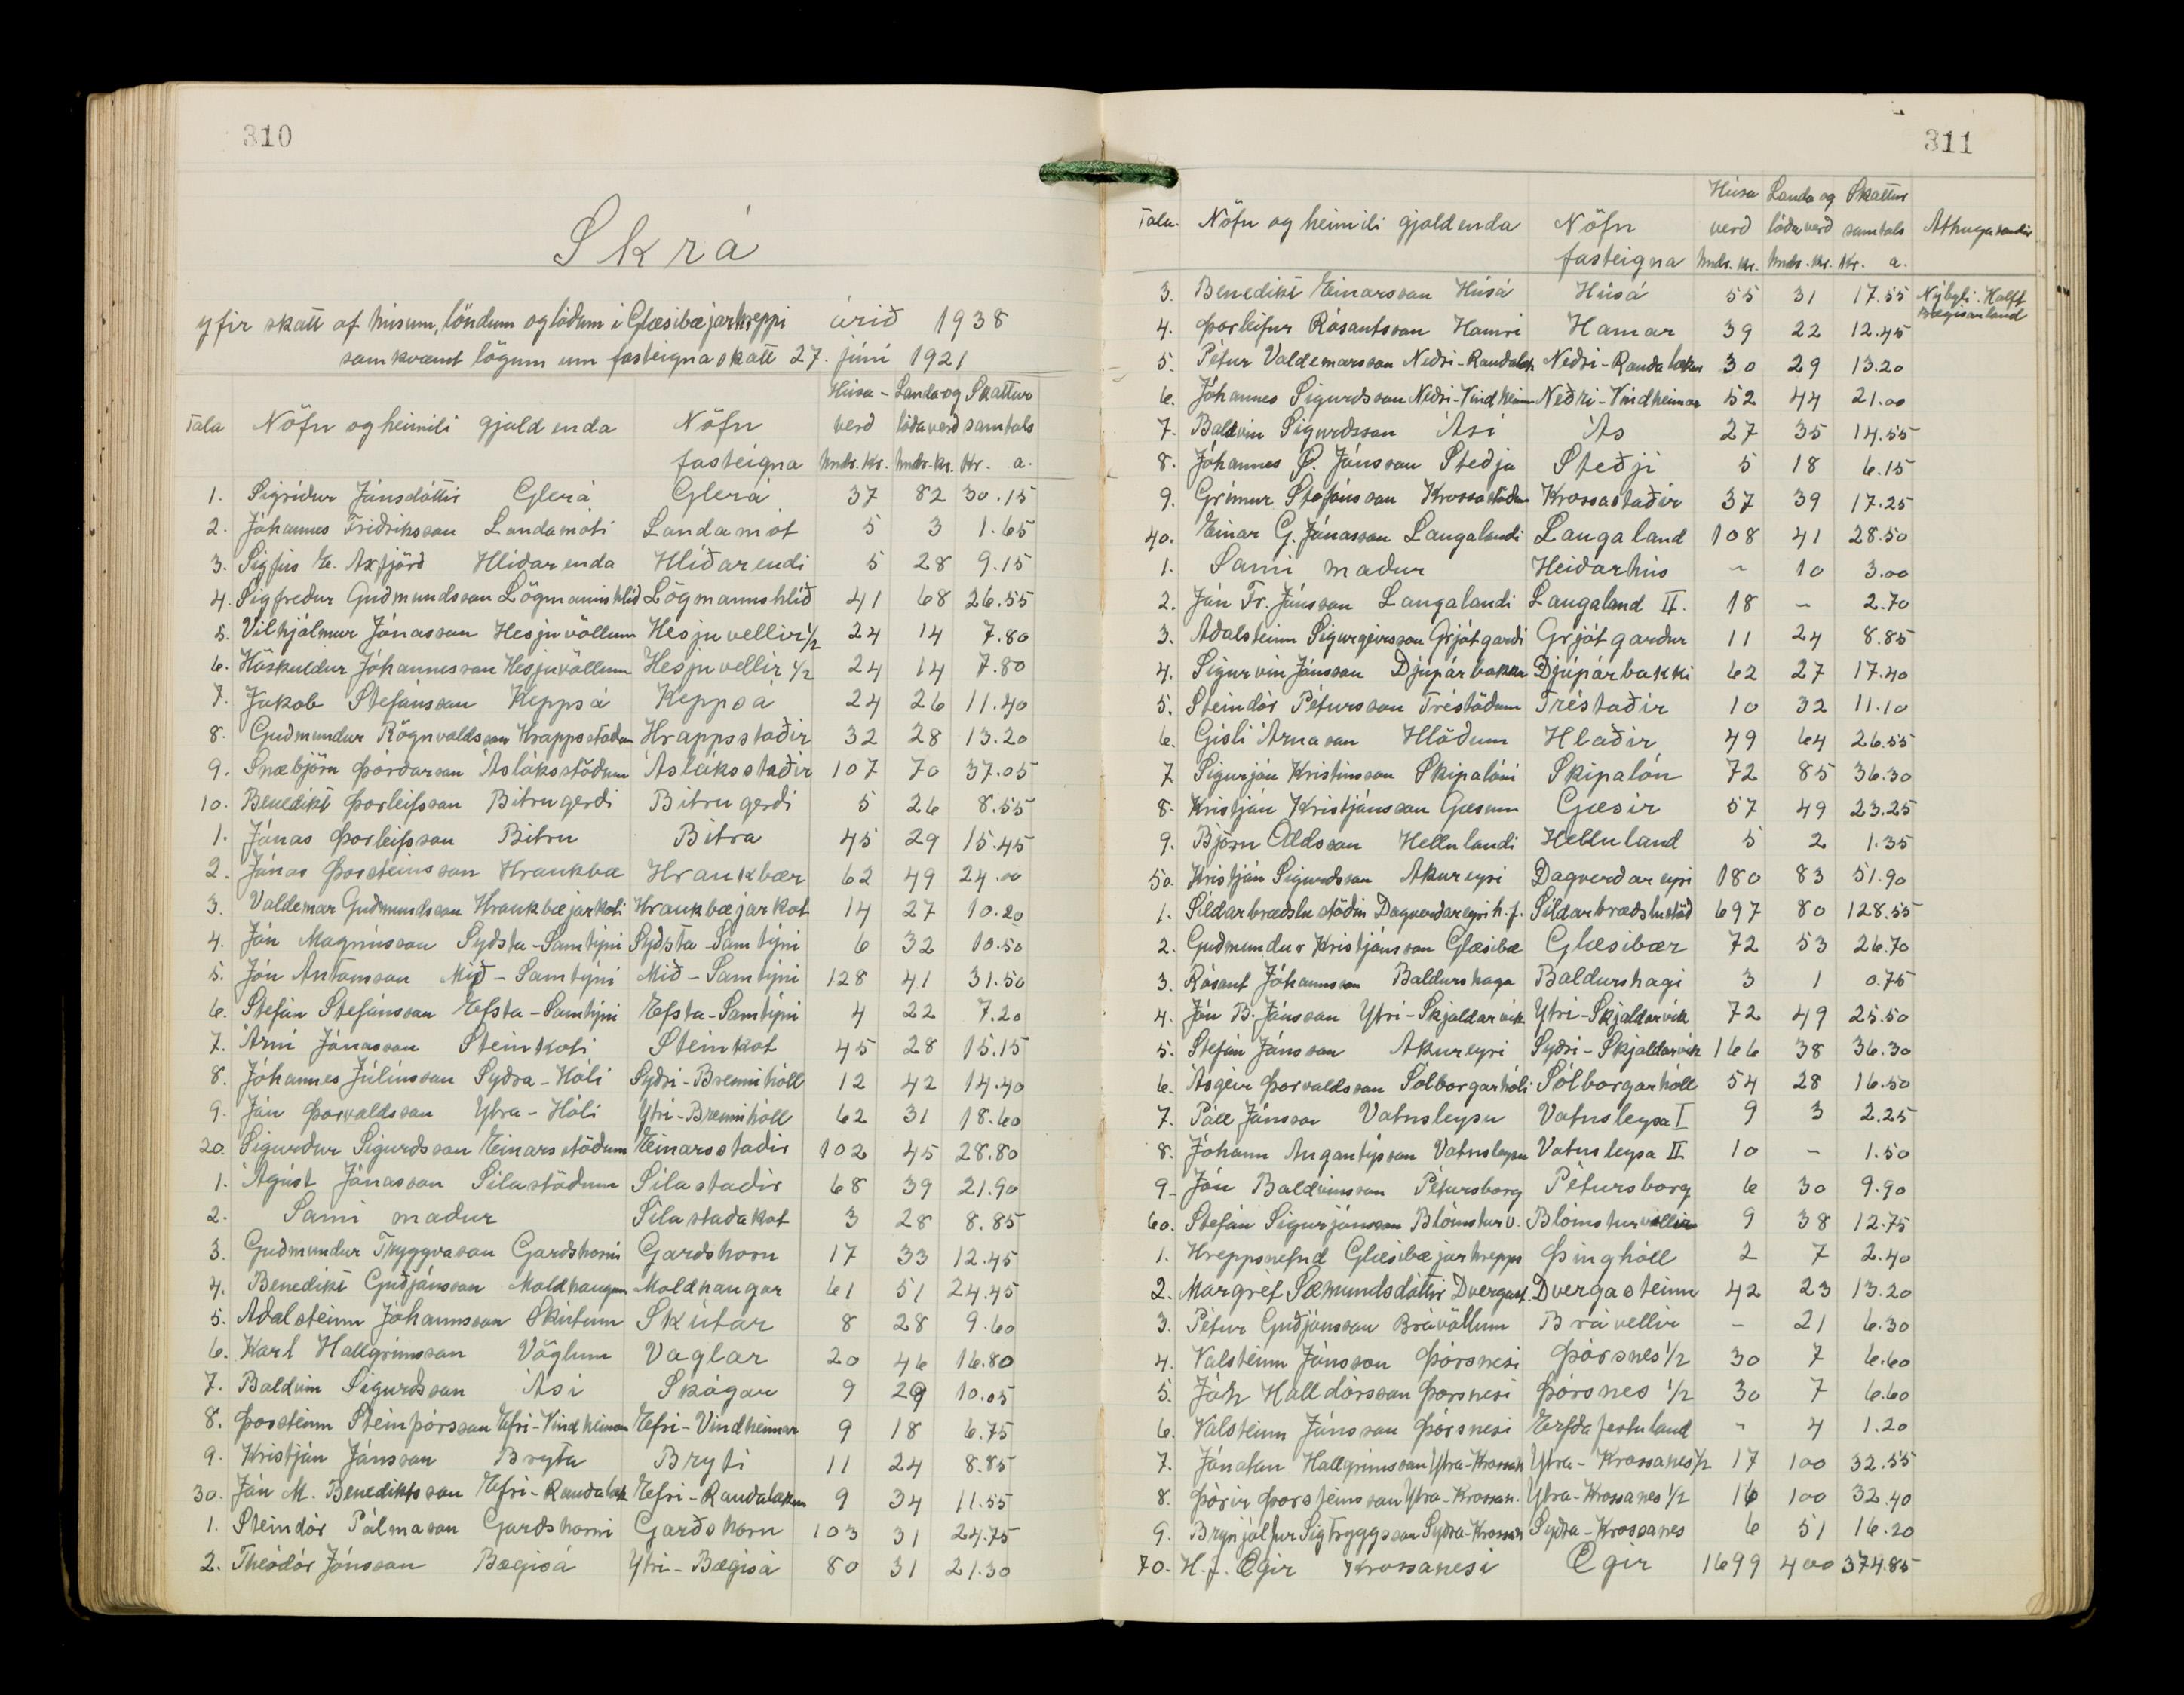 310
Skrá
yfir skatt af húsum, löndum og lóðum í Glæsibæjarhreppi árið 1938
samkvæmt lögum um fasteignaskatt 27. júní 1921
Húsa- Landa og Skattur
Tala Nöfn og heimili gjaldenda Nöfn verð lóðaverð samtals
fasteigna hndr. kr. hndr. kr. Kr. a.
1. Sigríður Jónsdóttir Glerá Glerá 37 82 30.15
2. Jóhannes Friðriksson Landamóti Landamót 5 3 1.65
3. Sigfús E. Axfjörð Hlíðarenda Hlíðarendi 5 28 9.15
4. Sigfreður Guðmundsson Lögmannshlíð Lögmannshlíð 41 68 26.55
5. Vilhjálmur Jónasson Hesjuvöllum Hesjuvellir 1/2 24 14 7.80
6. Höskuldur Jóhannesson Hesjuvöllum Hesjuvellir 1/2 24 14 7.80
7. Jakob Stefánsson Keppsá Keppsá 24 26 11.40
8. Guðmundur Rögnvaldsson Hrappsstöðum Hrappsstaðir 32 28 13.20
9. Snæbjörn Þórðarson Ásláksstöðum Ásláksstaðir 107 70 37.05
10. Benedikt Þorleifsson Bitrugerði Bitrugerði 5 26 8.55
1. Jónas Þorleifsson Bitru Bitra 45 29 15.45
2. Jónas Þorsteinsson Hraukbæ Hraukbær 62 49 24.00
3. Valdemar Guðmundsson Hraukbæjarkoti Hraukbæjarkot 14 27 10.20
4. Jón Magnússon Syðsta-Samtýni Syðsta-Samtýni 6 32 10.50
5. Jón Antonsson Mið-Samtýni Mið-Samtýni 128 41 31.50
6. Stefán Stefánsson Efsta-Samtýni Efsta-Samtýni 4 22 7.20
7. Árni Jónasson Steinkoti Steinkot 45 28 15.15
8. Jóhannes Júlíusson Syðra-Hóli Syðri-Brennihóll 12 42 14.40
9. Jón Þorvaldsson Ytra-Hóli Ytri-Brennihóll 62 31 18.60
20. Sigurður Sigurðsson Einarsstöðum Einarsstaðir 102 45 28.80
1. Ágúst Jónasson Sílastöðum Sílastaðir 68 39 21.90
2. Sami maður Sílastaðakot 3 28 8.85
3. Guðmundur Tryggvason Garðshorni Garðshorn 17 33 12.45
4. Benedikt Guðjónsson Moldhaugum Moldhaugar 61 51 24.45
5. Aðalsteinn Jóhannsson Skútum Skútar 8 28 9.60
6. Karl Hallgrímsson Vöglum Vaglar 20 46 16.80
7. Baldvin Sigurðsson Ási Skógar 9 29 10.05
8. Þorsteinn Steinþórsson Efri-Vindheimum Efri-Vindheimar 9 18 6.75
9. Kristján Jónsson Bryta Bryti 11 24 8.85
30. Jón M. Benediktsson Efri-Rauðalæk Efri-Rauðalækur 9 34 11.55
1. Steindór Pálmason Garðshorni Garðshorn 103 31 24.75
2. Theódór Jónsson Bægisá Ytri-Bægisá 80 31 21.30
311
Húsa Landa og Skattur
Tala. Nöfn og heimili gjaldenda Nöfn verð lóðaverð samtals Athugasemdir
fasteigna hndr. kr. hndr. kr. Kr. a.
3. Benedikt Einarsson Húsá Húsá 55 31 17.55 Nýbýli. Hálft
Bægisárland
4. Þorleifur Rósantsson Hamri Hamar 39 22 12.45
5. Pétur Valdemarsson Neðri-Rauðalæk Neðri-Rauðalækur 30 29 13.20
6. Jóhannes Sigurðsson Neðri-Vindheim Neðri-Vindheimar 52 44 21.00
7. Baldvin Sigurðsson Ási Ás 27 35 14.55
8. Jóhannes S. Jónsson Steðja Steðji 5 18 6.15
9. Grímur Stefánsson Krossastöðum Krossastaðir 37 39 17.25
40. Einar G. Jónasson Laugalandi Laugaland 108 41 28.50
1. Sami maður Heiðarhús - 10 3.00
2. Jón Fr. Jónsson Laugalandi Laugaland II. 18 - 2.70
3. Aðalsteinn Sigurgeirsson Grjótgarði Grjótgarður 11 24 8.85
4. Sigurvin Jónsson Djúpárbakka Djúpárbakki 62 27 17.40
5. Steindór Pétursson Tréstöðum Tréstaðir 10 32 11.10
6. Gísli Árnason Hlöðum Hlaðir 49 64 26.55
7. Sigurjón Kristinsson Skipalóni Skipalón 72 85 36.30
8. Kristján Kristjánsson Gæsum Gæsir 57 49 23.25
9. Björn Oddsson Hellulandi Helluland 5 2 1.35
50. Kristján Sigurðsson Akureyri Dagverðareyri 180 83 51.90
1. Síldarbræðslustöðin Dagverðareyri h.f. Síldarbræðslustöð 697 80 128.55
2. Guðmundur Kristjánsson Glæsibæ Glæsibær 72 53 26.70
3. Rósant Jóhannsson Baldurshaga Baldurshagi 3 1 0.75
4. Jón B. Jónsson Ytri-Skjaldarvík Ytri-Skjaldarvík 72 49 25.50
5. Stefán Jónsson Akureyri Syðri-Skjaldarvík 166 38 36.30
6. Ásgeir Þorvaldsson Sólborgarhóli Sólborgarhóll 54 28 16.50
7. Páll Jónsson Vatnsleysu Vatnsleysa I 9 3 2.25
8. Jóhann Angantýsson Vatnsleysu Vatnsleysa II 10 - 1.50
9. Jón Baldvinsson Pétursborg Pétursborg 6 30 9.90
60. Stefán Sigurjónsson Blómsturv. Blómsturvellir 9 38 12.75
1. Hreppsnefnd Glæsibæjarhrepps Þinghóll 2 7 2.40
2. Margrét Sæmundsdóttir Dvergast. Dvergasteinn 42 23 13.20
3. Pétur Guðjónsson Brávöllum Brávellir - 21 6.30
4. Valsteinn Jónsson Þórsnesi Þórsnes 1/2 30 7 6.60
5. Jón Halldórsson Þórsnesi Þórsnes 1/2 30 7 6.60
6. Valsteinn Jónsson Þórsnesi Erfðafestuland - 4 1.20
7. Jónatan Hallgrímsson Ytra-Krossan Ytra-Krossanes 1/2 17 100 32.55
8. Þórir Þorsteinsson Ytra-Krossan. Ytra-Krossanes 1/2 16 100 32.40
9. Brynjólfur Sigtryggsson Syðra-Krossan Syðra-Krossanes 6 51 16.20
70. H.f. Ægir Krossanesi Ægir 1699 400 374.85